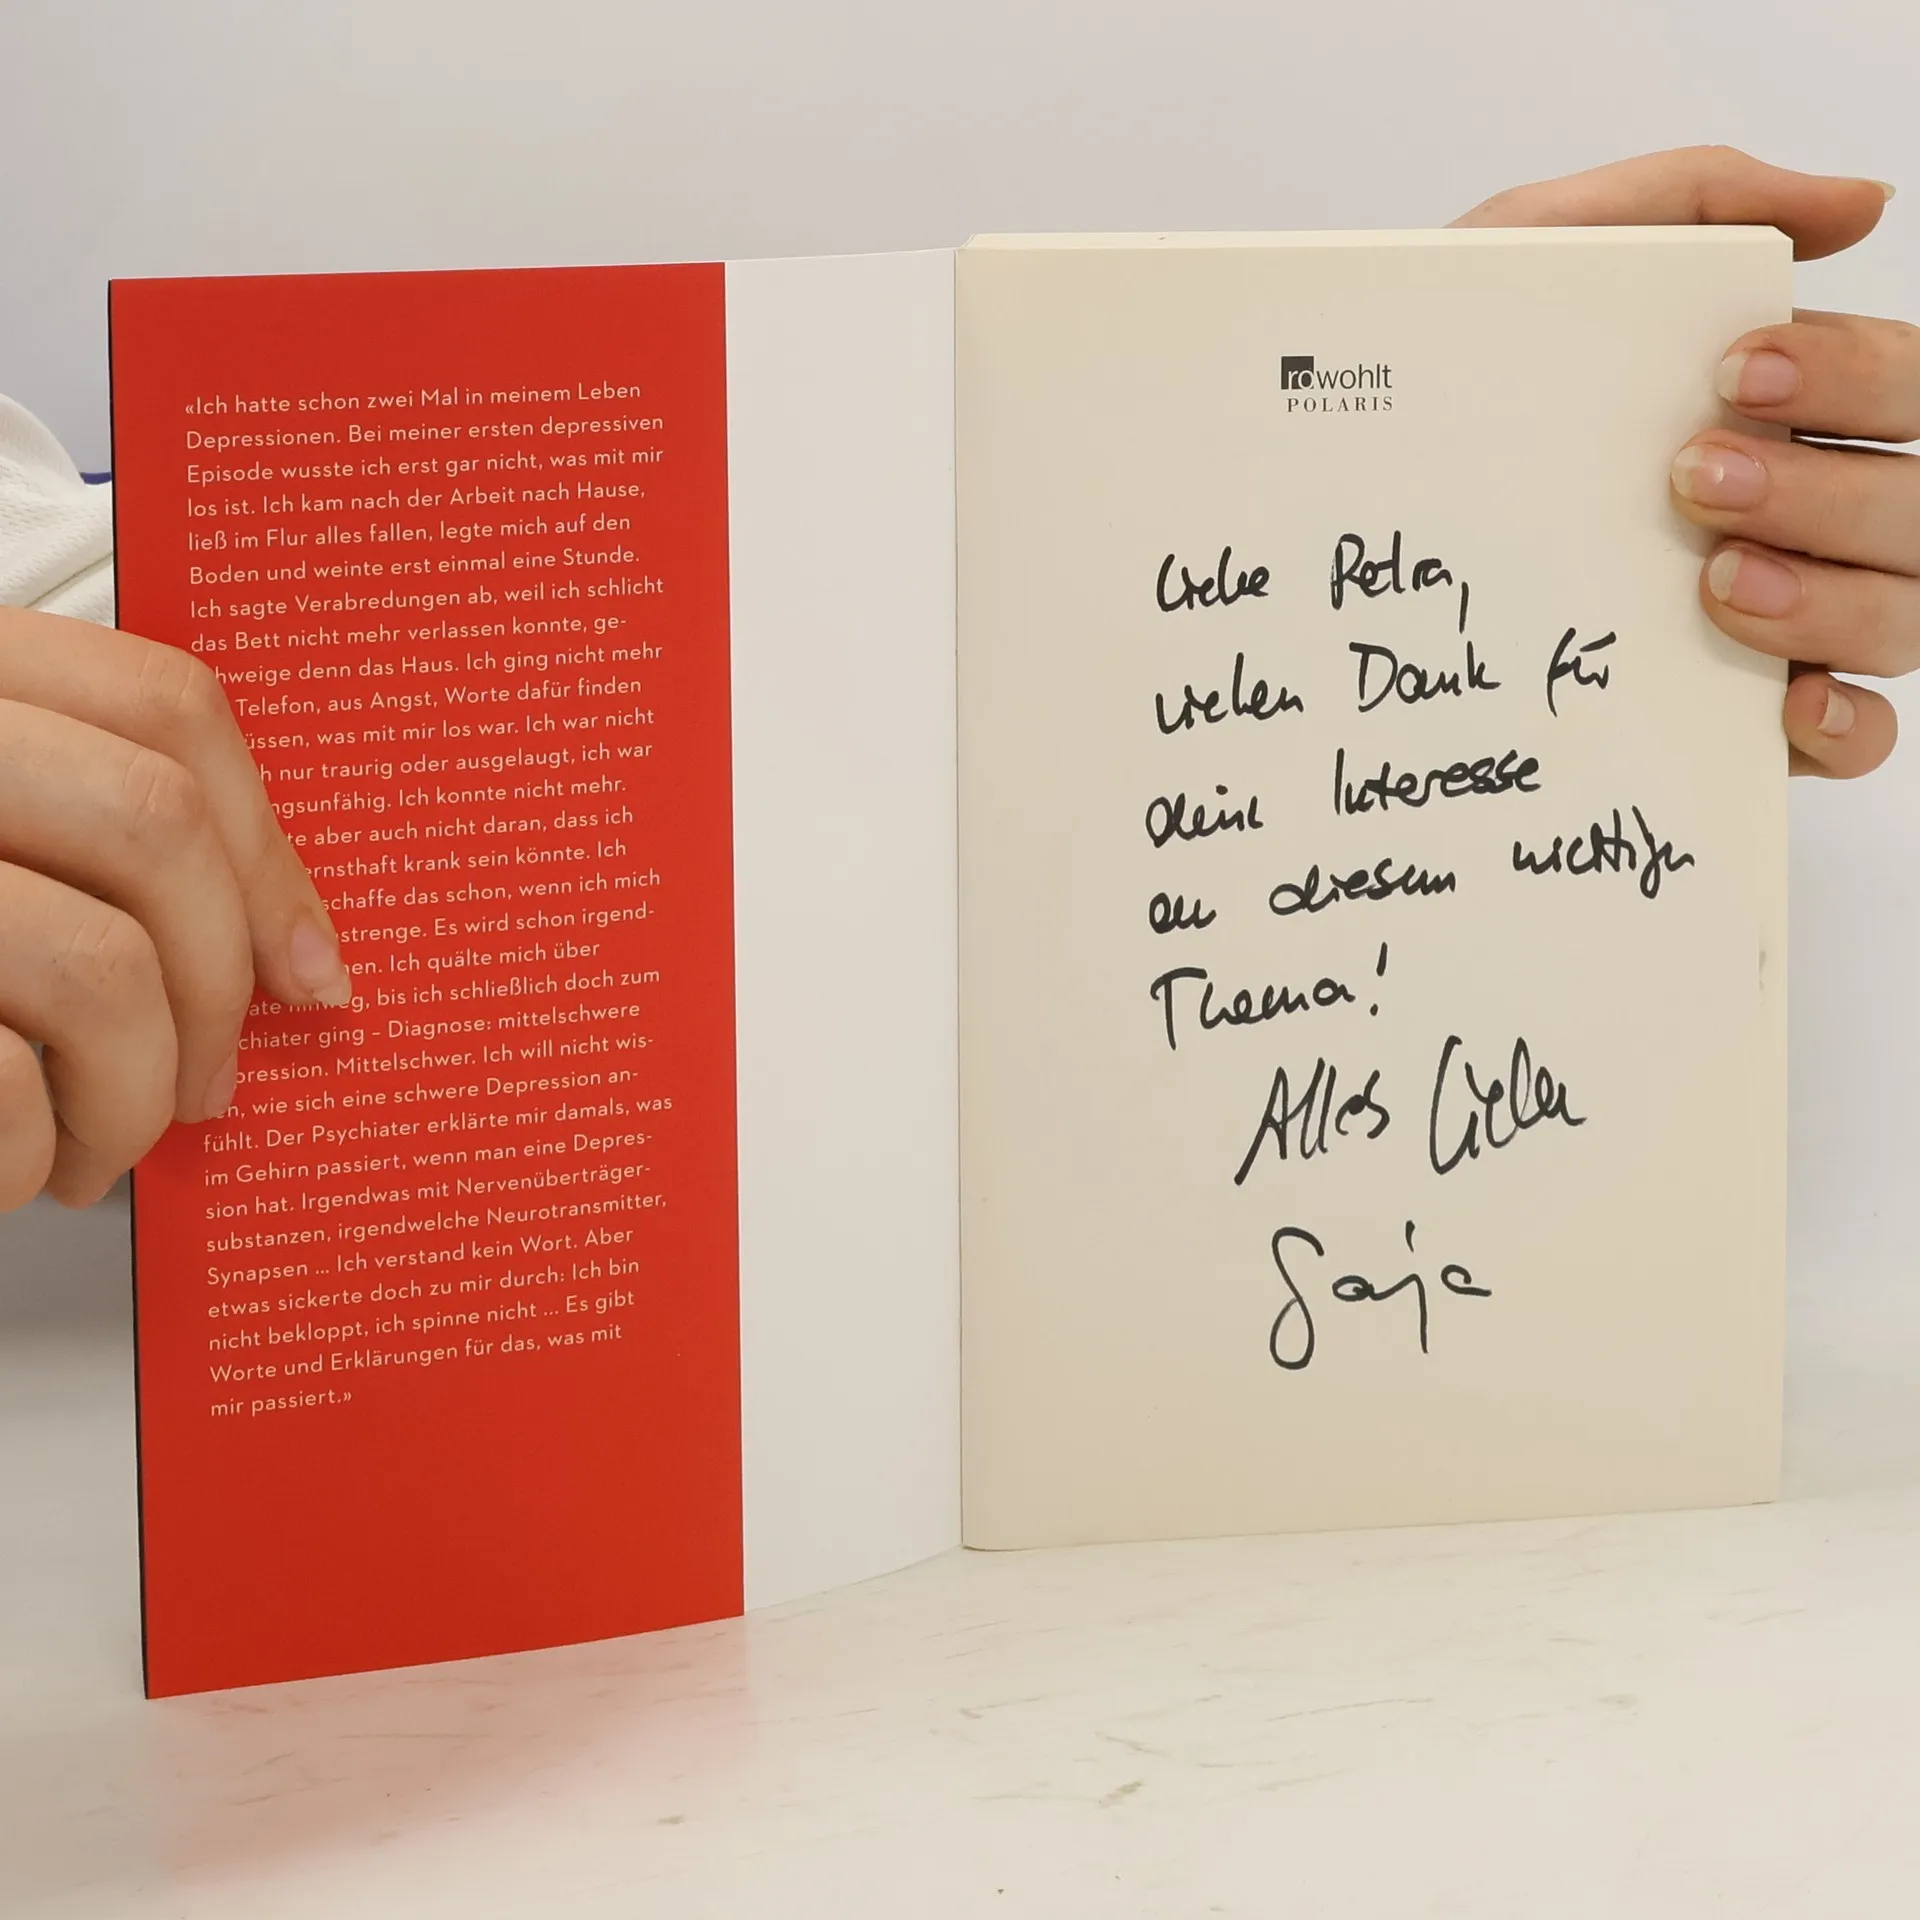 «Ich hatte schon zwei Mal in meinem Leben
Depressionen. Bei meiner ersten depressiven
Episode wusste ich erst gar nicht, was mit mir
los ist. Ich kam nach der Arbeit nach Hause,
ließ im Flur alles fallen, legte mich auf den
Boden und weinte erst einmal eine Stunde.
Ich sagte Verabredungen ab, weil ich schlicht
das Bett nicht mehr verlassen konnte, ge-
hweige denn das Haus. Ich ging nicht mehr
Telefon, aus Angst, Worte dafür finden
üssen, was mit mir los war. Ich war nicht
h nur traurig oder ausgelaugt, ich war
ngsunfähig. Ich konnte nicht mehr.
te aber auch nicht daran, dass ich
ernsthaft krank sein könnte. Ich
schaffe das schon, wenn ich mich
strenge. Es wird schon irgend-
en. Ich quälte mich über
ate hinweg, bis ich schließlich doch zum
chiater ging – Diagnose: mittelschwere
pression. Mittelschwer. Ich will nicht wis-
en, wie sich eine schwere Depression an-
fühlt. Der Psychiater erklärte mir damals, was
im Gehirn passiert, wenn man eine Depres-
sion hat. Irgendwas mit Nervenüberträger-
substanzen, irgendwelche Neurotransmitter,
Synapsen ... Ich verstand kein Wort. Aber
etwas sickerte doch zu mir durch: Ich bin
nicht bekloppt, ich spinne nicht ... Es gibt
Worte und Erklärungen für das, was mit
mir passiert.»
rowohlt
POLARIS
Liebe Petra,
vielen Dank für
dein Interesse
an diesem wichtigen
Thema!
Alles Liebe